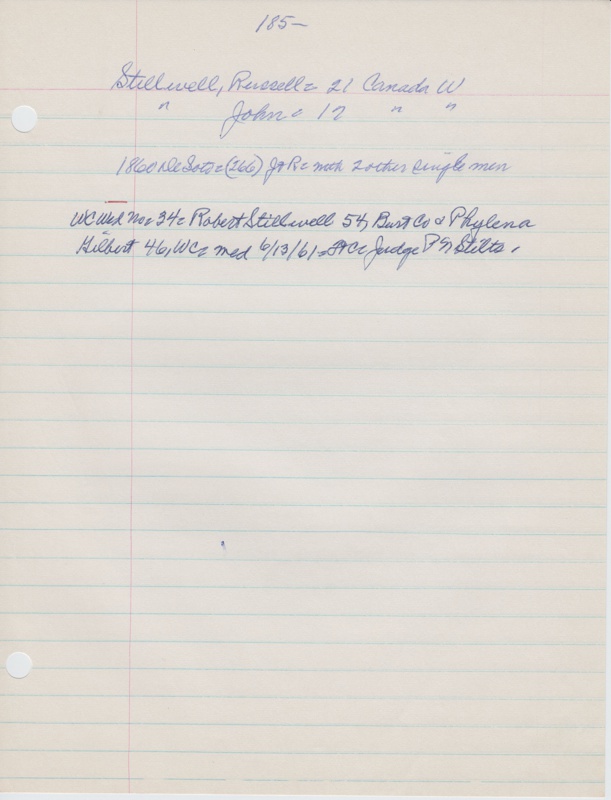 185-
Stillwell, Russell = 21 Canada W
" John = 17 " "
1860 DeSoto = (266) J+R = with 2 other single men
WC Wed No = 34 = Robert Stillwell 54, Burt Co & Phylena
Hilbert 46, WC = med 6/13/61 = Judge P G Stilts.